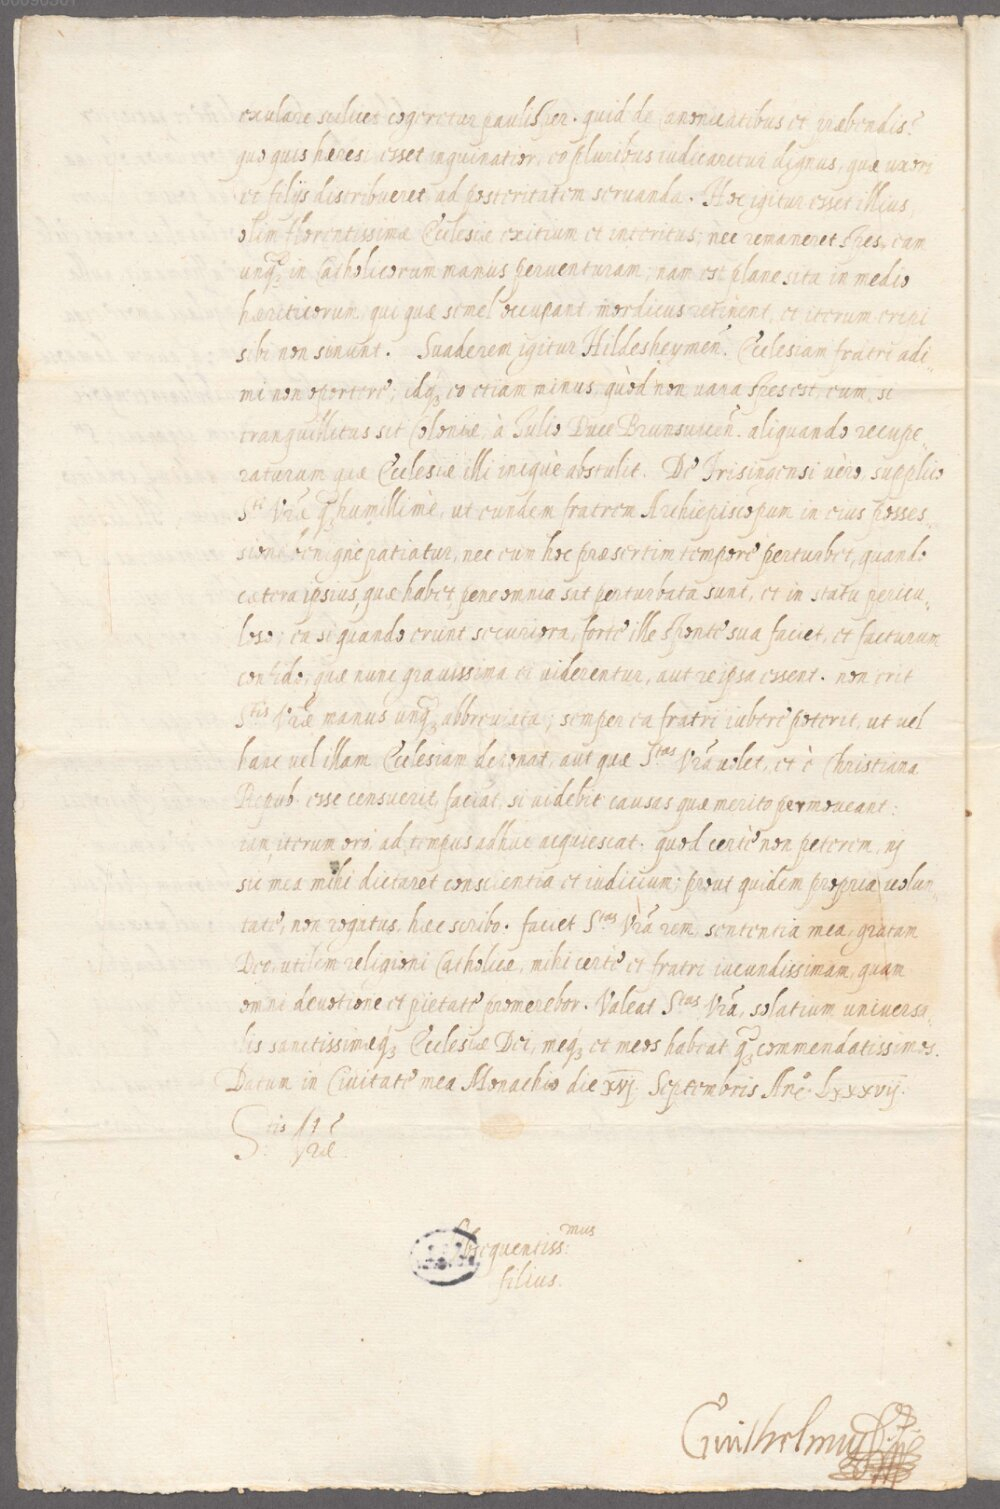 exulare scilicet cogeretur paulisper. quid de Canonicatibus et præbendis?
quo quis hæresi esset inquinatior, eo pluribus iudicaretur dignus, quæ uxori
et filijs distribueret, ad posteritatem seruanda. Hoc igitur esset illius,
olim florentissimæ Ecclesiæ exitium et interitus, nec remaneret spes, eam
unq̃ in Catholicorum manus peruenturam, nam est plane sita in medio
hæreticorum, qui quæ semel occupant, mordicus retinent, et iterum eripi
sibi non sinunt. Suaderem igitur Hildesheymeñ. Ecclesiam fratri adi-
mi non oportere, idq́3 eo etiam minus, quòd non uana spes est, eum, si
tranquillitus sit Coloniæ, à Iulio Duce Brunsuiceñ. aliquando recupe-
raturum quæ Ecclesiæ illi iniquè abstulit. De Frisingensi uèro, supplico
S.ti Vræ q̃3 humillimè, ut eundem fratrem Archiepiscopum in eius posses-
sione benignè patiatur, nec eum hoc præsertim tempore perturbet, quando
cætera ipsius, quæ habet, pene omnia sat perturbata sunt, et in statu pericu-
loso; ea si quando erunt securiora, forte ille sponte sua faciet, et facturum
confido, quæ nunc grauissima ei uiderentur, aut reipsa essent. non erit
S.tis Vræ manus unq̃3 abbreuiata; semper ea fratri iubere poterit, ut uel
hanc uel illam Ecclesiam deponat, aut quæ S.tas Vrã uolet, et è Christiana
Repub. esse censuerit, faciat, si uidebit causas quæ merito permoueant:
iam iterum oro, ad tempus adhuc acquiescat. quod certè non peterem, nj
sic mea mihi dictaret conscientia et iudicium; prout quidem propria uolun-
tate, non rogatus, hæc scribo. faciet S.tas Vrã rem, sententia mea, gratam
Deo, utilem religioni Catholicæ, mihi certè et fratri iucundissimam, quam
omni deuotione et pietate promerebor. Valeat S.tas Vrã, solatium uniuersa-
lis sanctissimæq́3 Ecclesiæ Dei, meq́3 et meos habeat q̃3 commendatissimos.
Datum in Ciuitate mea Monachio die xvj Septembris Añ. Lxxxvij.
S.tis Vræ
Obsequentiss:mus
filius.
Guilhelmus